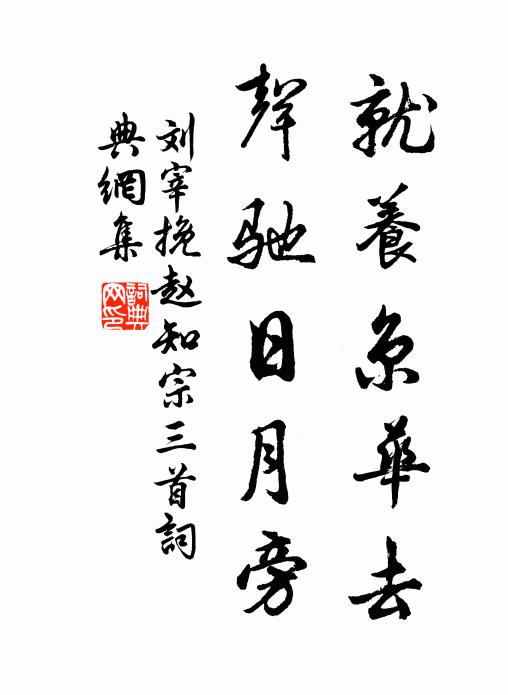 就養京華去
聲馳日月旁
刘宰挽赵知宗三首詞
典網集
詞典
网印